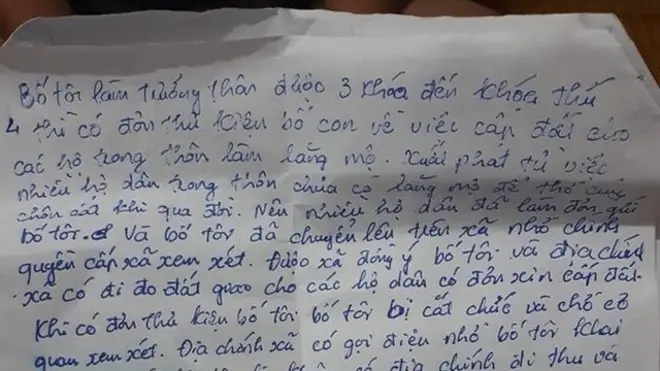 Bố tôi làm trưởng thôn được 3 khóa đến khóa thứ
4 thì có đơn thư kiện bố con về việc cấp đất cho
các hộ trong thôn làm lăng mộ. Xuất phát từ việc
nhiều hộ dân trong thôn chưa có lăng mộ để thờ cúng
chôn cất khi qua đời. Nên nhiều hộ dân đã làm đơn gửi
bố tôi. Và bố tôi đã chuyển lên trên xã nhờ chính
quyền cấp xã xem xét. Được xã đồng ý bố tôi và địa chính
xã có đi đo đất giao cho các hộ dân có đơn xin cấp đất.
Khi có đơn thư kiện bố tôi bố tôi bị cắt chức và chờ cơ
quan xem xét. Địa chính xã có gọi điện nhờ bố tôi khai
địa chính đi thu và